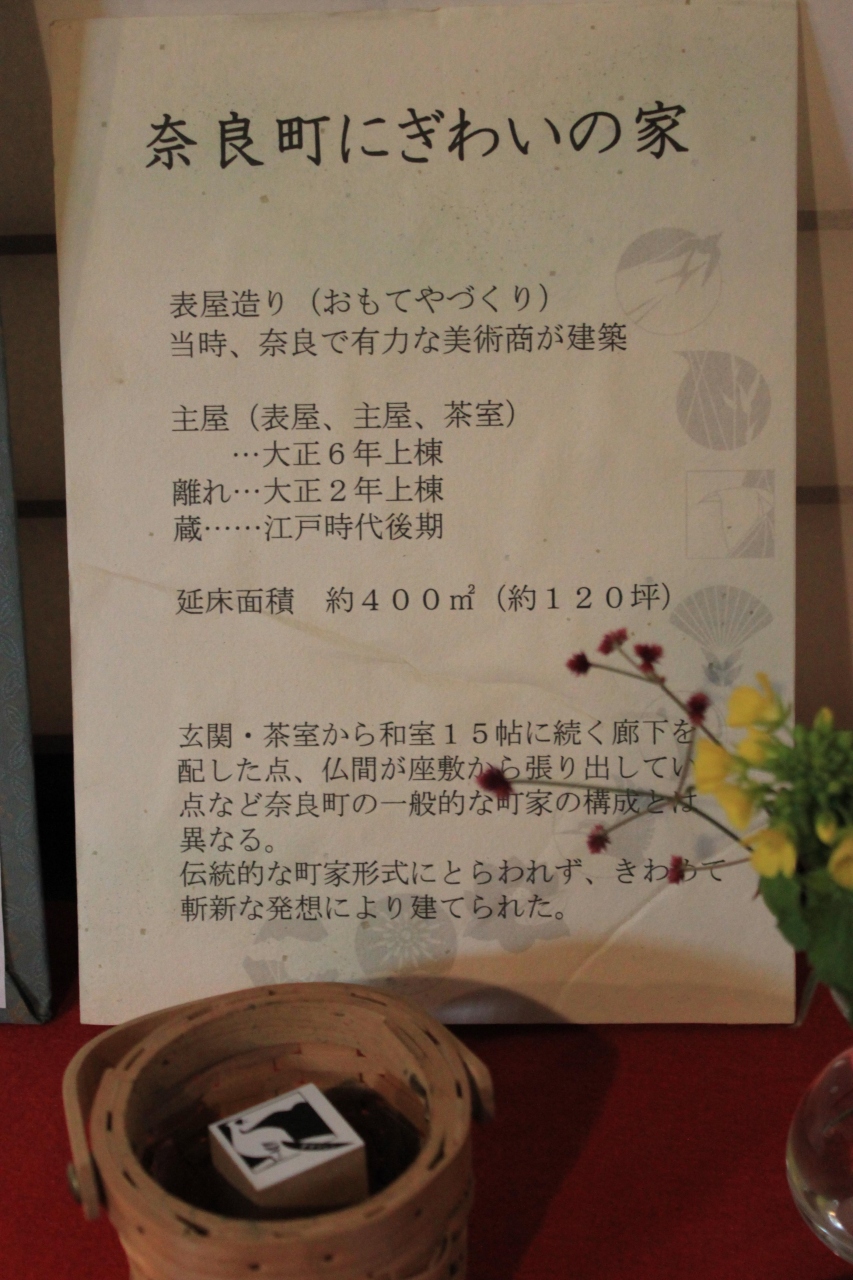 奈良町にぎわいの家
表屋造り（おもてやづくり）
当時、奈良で有力な美術商が建築
主屋（表屋、主屋、茶室）
…大正６年上棟
離れ…大正２年上棟
蔵……江戸時代後期
延床面積　約４００㎡（約１２０坪）
玄関・茶室から和室１５帖に続く廊下を
配した点、仏間が座敷から張り出してい
点など奈良町の一般的な町家の構成とは
異なる。
伝統的な町家形式にとらわれず、きわめて
斬新な発想により建てられた。